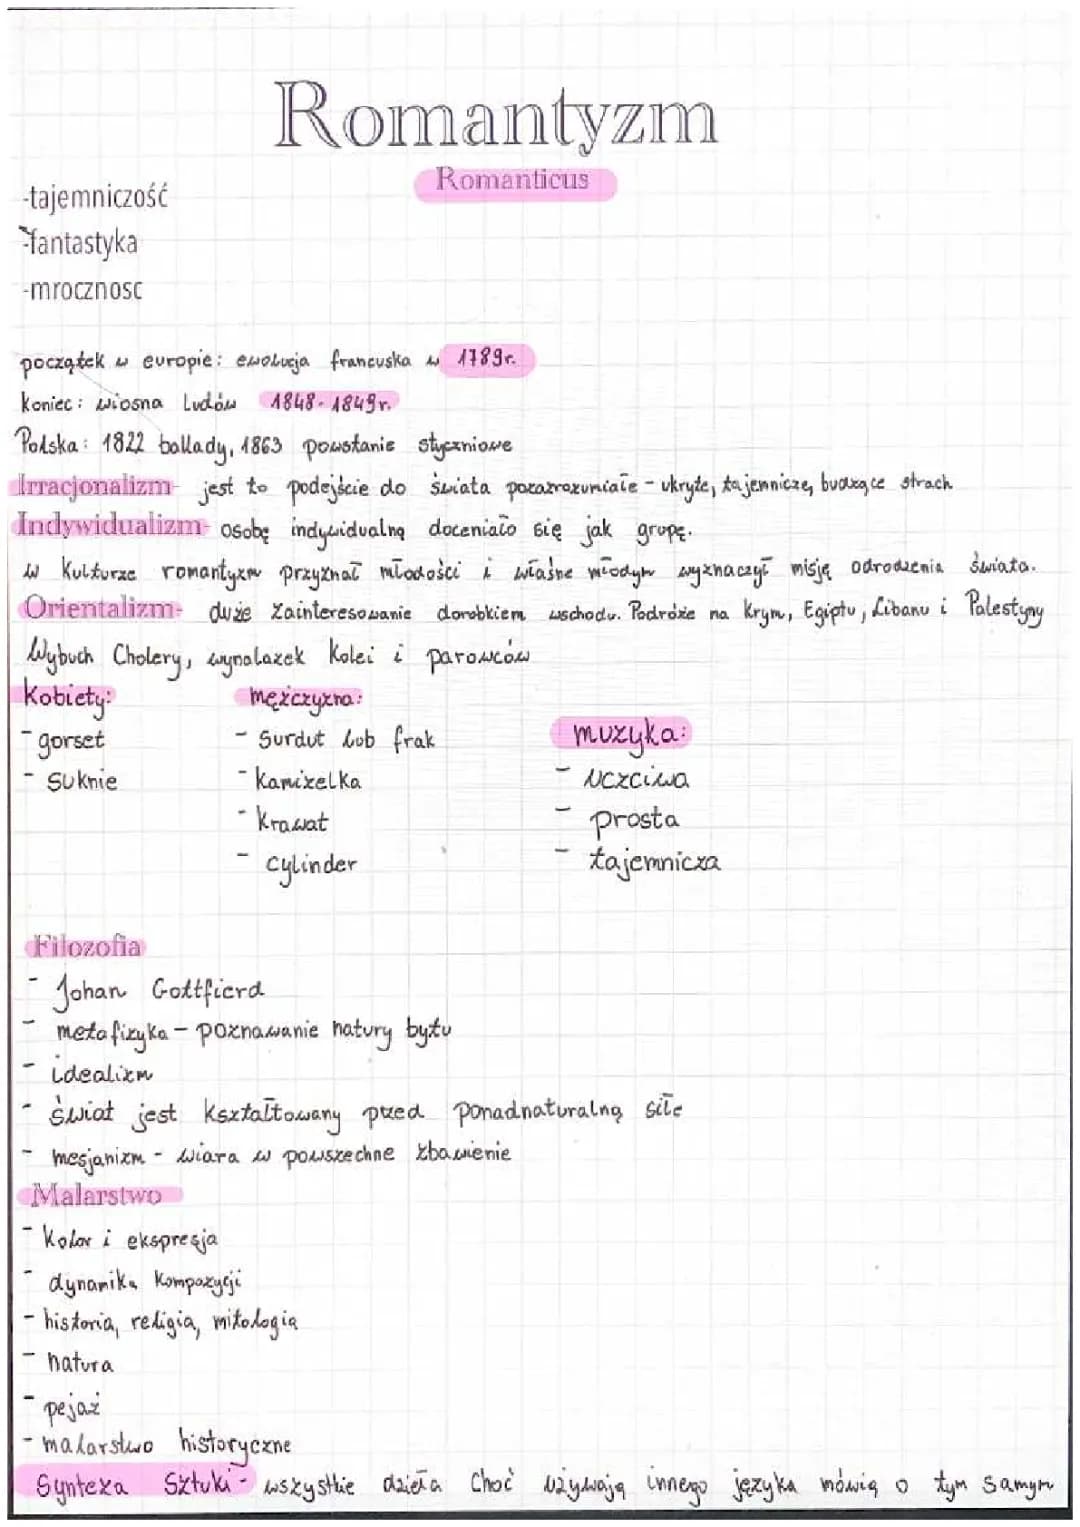 Romantyzm
Romanticus
-tajemniczość
-fantastyka
-mrocznosc
początek w europie: ewolucja francuska w 1789r.
koniec: wiosna Ludów 1848-1849r.
Polska: 1822 ballady, 1863 powstanie styczniowe
Irracjonalizm- jest to podejście do świata pozazrozumiałe - ukryte, tajemnicze, budzące strach
Indywidualizm- osobę indywidualną doceniało się jak grupę.
w kulturze romantyzm przyznał młodości i właśne młodym wyznaczył misję odrodzenia świata.
Orientalizm- duże zainteresowanie dorobkiem wschodu. Podróże na Krym, Egiptu, Libanu i Palestyny
Wybuch Cholery, wynalazek Kolei i parowców
Kobiety: mężczyzna:
muzyka:
- gorset - Surdut lub frak
- suknie - kamizelka - uczciwa
- krawat - prosta
- cylinder - tajemnicza
Filozofia
- Johan Gottfierd
- metafizyka - poznawanie natury bytu
- idealizm
- świat jest kształtowany pzed ponadnaturalną siłe
- mesjanizm - wiara w powszechne zbawienie
Malarstwo
- kolor i ekspresja
- dynamika kompozycji
- historia, religia, mitologia
- natura
- pejaż
- malarstwo historyczne
Synteza Sztuki - wszystkie dzieła choć używają innego języka mówią o tym samym